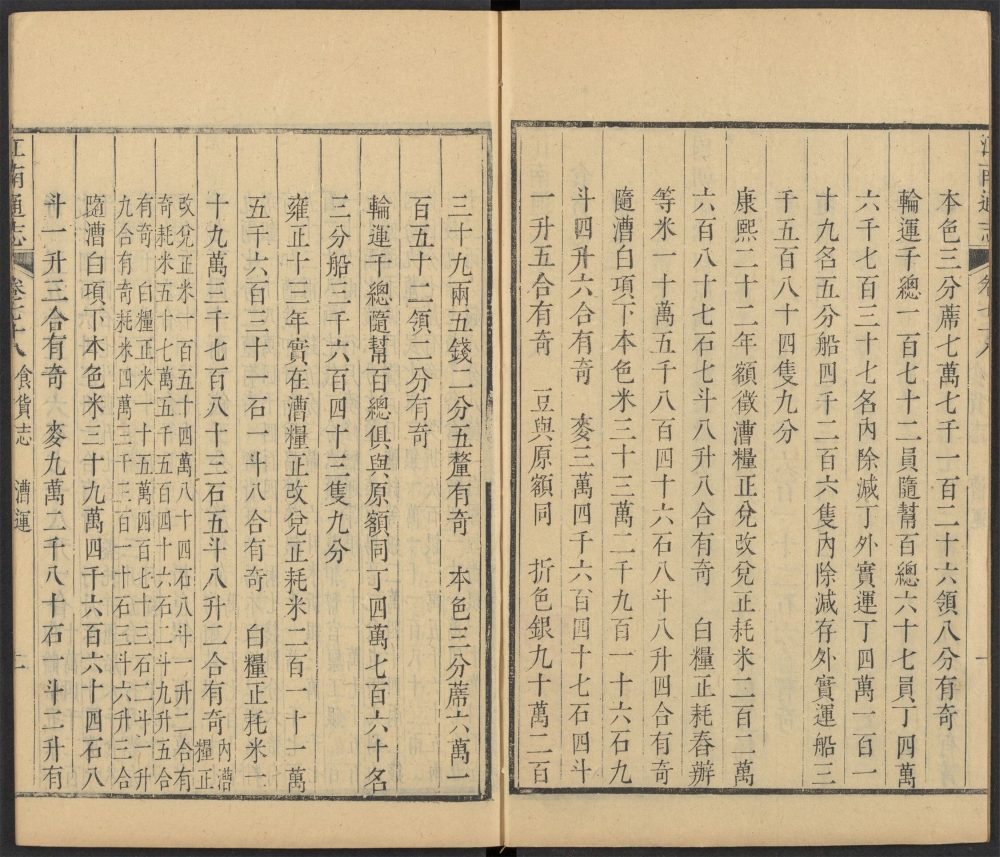 江南通志 卷七十八
本色三分蓆七萬七千一百二十六領八分有奇
輪運千總一百七十二員隨幫百總六十七員丁四萬
六千七百三十七名內除減丁外實運丁四萬一百一
十九名五分船四千二百六隻內除減存外實運船三
千五百八十四隻九分
康熙二十二年額徵漕糧正兌改兌正耗米二百二萬
六百八十七石七斗八升八合有奇 白糧正耗舂辦
等米一十萬五千八百四十六石八斗八升四合有奇
隨漕白項下本色米三十三萬二千九百一十六石九
斗四升六合有奇 麥三萬四千六百四十七石四斗
一升五合有奇 豆與原額同 折色銀九十萬二百
三十九兩五錢二分五釐有奇 本色三分蓆六萬一
百五十二領二分有奇
輪運千總隨幫百總俱與原額同丁四萬七百六十名
三分船三千六百四十三隻九分
雍正十三年實在漕糧正改兌正耗米二百一十一萬
五千六百三十一石一斗八合有奇 白糧正耗米一
十九萬三千七百八十三石五斗八升二合有奇 內漕
糧正
改兌正米一百五十四萬八十四石八斗一升二合有
奇耗米五十七萬五千五百四十六石二斗九升五合
有奇 白糧正米一十五萬四百七十三石二斗一升
九合有奇耗米四萬三千三百一十石三斗六升三合
隨漕白項下本色米三十九萬四千六百六十四石八
斗一升三合有奇 麥九萬二千八十石一斗二升有
江南通志 卷七十八 食貨志 漕運 二